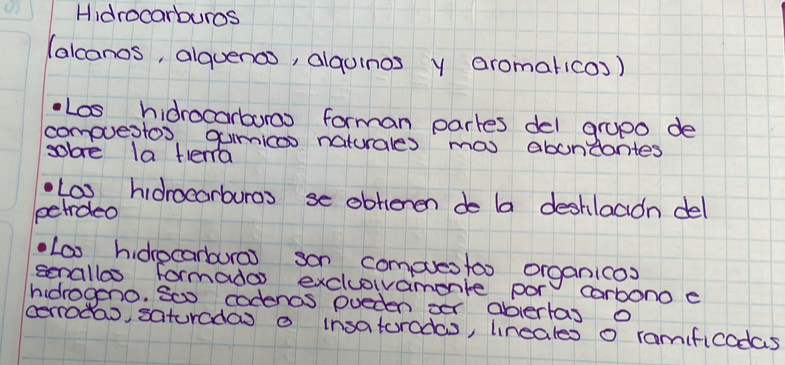 Hidrocarburos
(alcanos, alquenos, alquinos y aromaticos)
•Los hidrocarburos forman partes del grupo de
compuestos quimicos naturales mas abundantes
sobre la tierra
•Los hidrocarburos se obtienen de la destilación del
petroleo
•Los hidrocarburos son compuestos organicos
sencillos formados exclusivamente por carbono e
hidrogeno. Sus cadenas pueden ser abiertas o
cerradas, saturadas o insaturadas, lineales o ramificadas